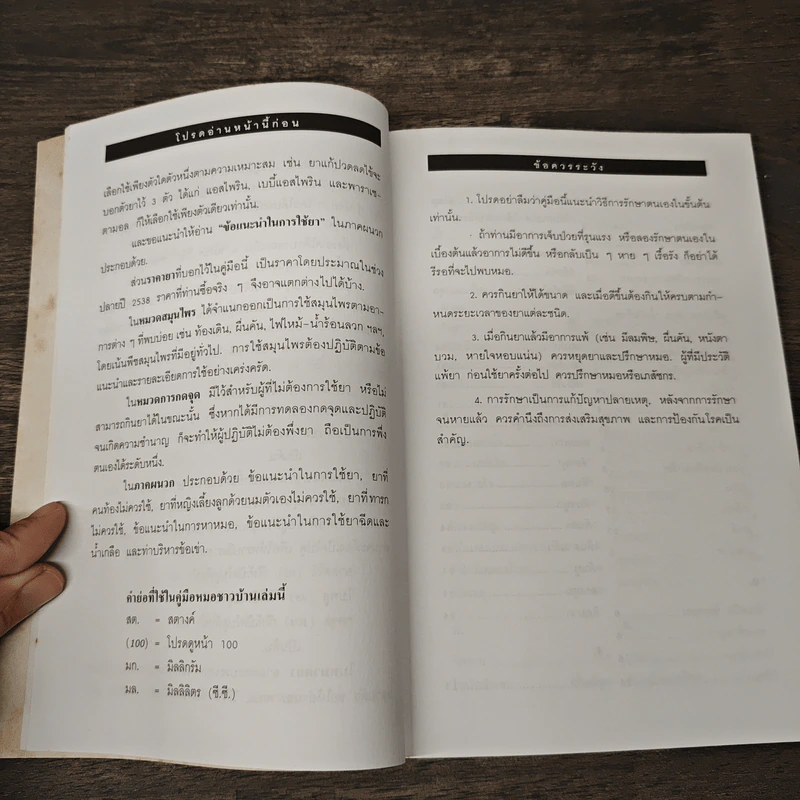 โปรดอ่านหน้านี้ก่อน
เลือกใช้เพียงตัวใดตัวหนึ่งตามความเหมาะสม เช่น ยาแก้ปวดลดไข้จะ
บอกตัวยาไว้ 3 ตัว ได้แก่ แอสไพริน, เบบี้แอสไพริน และพาราเซ-
ตามอล ก็ให้เลือกใช้เพียงตัวเดียวเท่านั้น.
และขอแนะนำให้อ่าน "ข้อแนะนำในการใช้ยา" ในภาคผนวก
ประกอบด้วย.
ส่วนราคายาที่บอกไว้ในคู่มือนี้ เป็นราคาโดยประมาณในช่วง
ปลายปี 2538 ราคาที่ท่านซื้อจริง ๆ จึงอาจแตกต่างไปได้บ้าง.
ในหมวดสมุนไพร ได้จำแนกออกเป็นการใช้สมุนไพรตามอา-
การต่าง ๆ ที่พบบ่อย เช่น ท้องเดิน, ผื่นคัน, ไฟไหม้-น้ำร้อนลวก ฯลฯ,
โดยเน้นพืชสมุนไพรที่มีอยู่ทั่วไป. การใช้สมุนไพรต้องปฏิบัติตามข้อ
แนะนำและรายละเอียดการใช้อย่างเคร่งครัด.
ในหมวดการกดจุด มีไว้สำหรับผู้ที่ไม่ต้องการใช้ยา หรือไม่
สามารถกินยาได้ในขณะนั้น ซึ่งหากได้มีการทดลองกดจุดและปฏิบัติ
จนเกิดความชำนาญ ก็จะทำให้ผู้ปฏิบัติไม่ต้องพึ่งยา ถือเป็นการพึ่ง
ตนเองได้ระดับหนึ่ง.
ในภาคผนวก ประกอบด้วย ข้อแนะนำในการใช้ยา, ยาที่
คนท้องไม่ควรใช้, ยาที่หญิงเลี้ยงลูกด้วยนมตัวเองไม่ควรใช้, ยาที่ทารก
ไม่ควรใช้, ข้อแนะนำในการหาหมอ, ข้อแนะนำในการใช้ยาฉีดและ
น้ำเกลือ และท่าบริหารข้อเข่า.
คำย่อที่ใช้ในคู่มือหมอชาวบ้านเล่มนี้
สต. = สตางค์
(100) = โปรดดูหน้า 100
มก. = มิลลิกรัม
มล. = มิลลิลิตร (ซี.ซี.)
ข้อควรระวัง
1. โปรดอย่าลืมว่าคู่มือนี้แนะนำวิธีการรักษาตนเองในขั้นต้น
เท่านั้น.
ถ้าท่านมีอาการเจ็บป่วยที่รุนแรง หรือลองรักษาตนเองใน
เบื้องต้นแล้วอาการไม่ดีขึ้น หรือกลับเป็น ๆ หาย ๆ เรื้อรัง ก็อย่าได้
รีรอที่จะไปพบหมอ.
2. ควรกินยาให้ได้ขนาด และเมื่อดีขึ้นต้องกินให้ครบตามกำ-
หนดระยะเวลาของยาแต่ละชนิด.
3. เมื่อกินยาแล้วมีอาการแพ้ (เช่น มีลมพิษ, ผื่นคัน, หนังตา
บวม, หายใจหอบแน่น) ควรหยุดยาและปรึกษาหมอ. ผู้ที่มีประวัติ
แพ้ยา ก่อนใช้ยาครั้งต่อไป ควรปรึกษาหมอหรือเภสัชกร.
4. การรักษาเป็นการแก้ปัญหาปลายเหตุ, หลังจากการรักษา
จนหายแล้ว ควรคำนึงถึงการส่งเสริมสุขภาพ และการป้องกันโรคเป็น
สำคัญ.